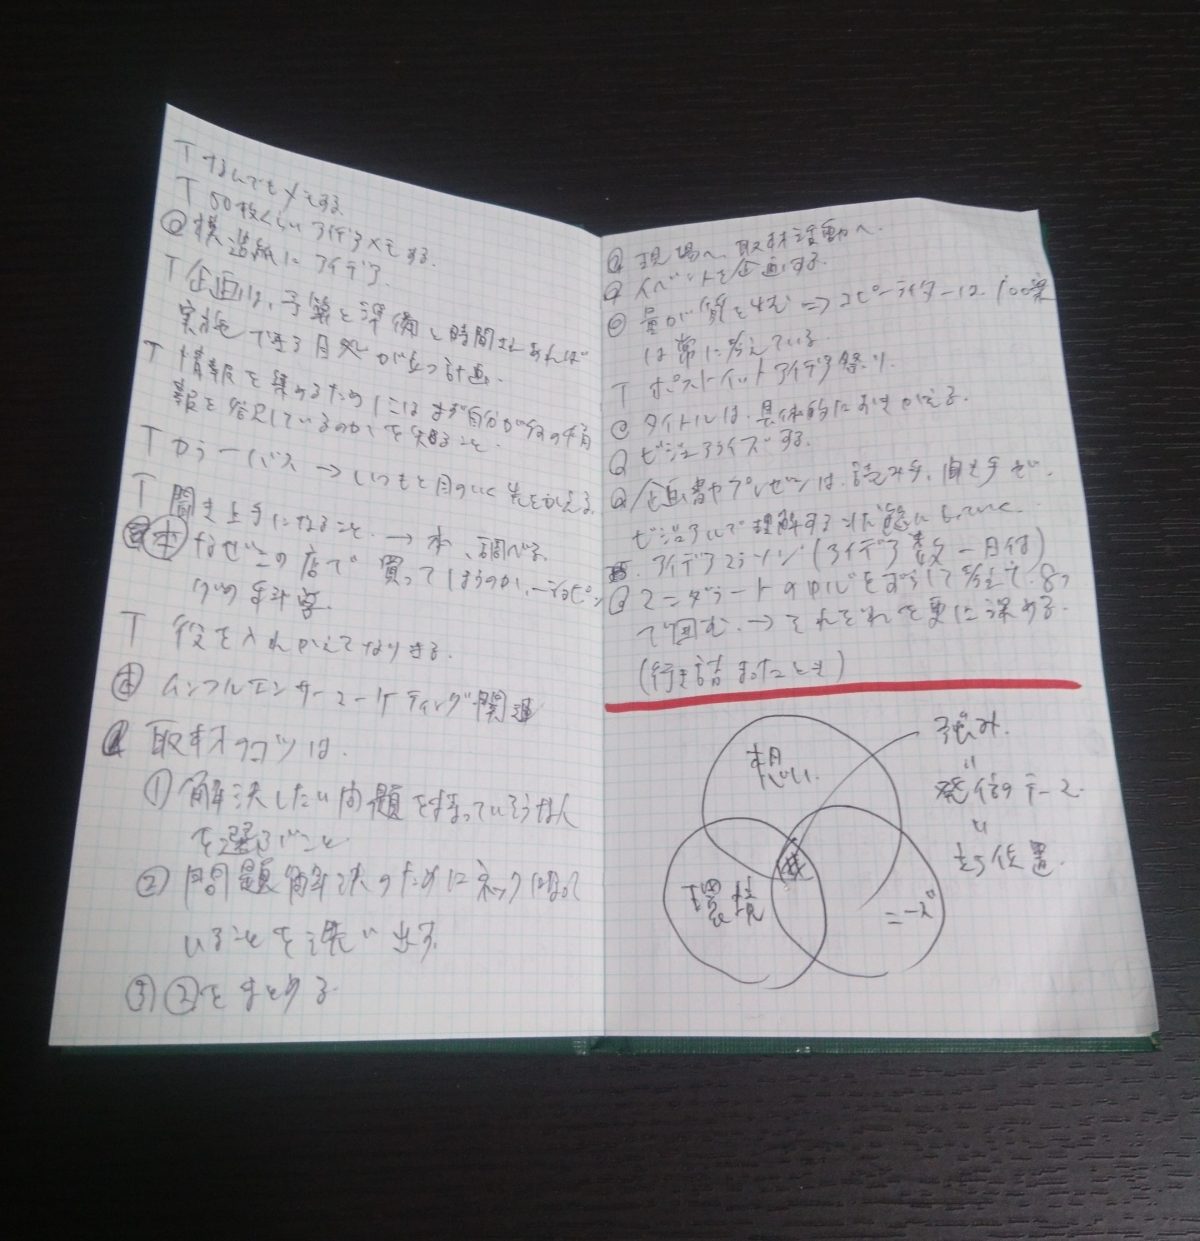 T なんでもメモする
T 50枚くらいアイデアメモする.
模造紙にアイデア.
T 企画は、予算と準備と時間さえあれば
実施できる目処が立つ計画.
T 情報を集めるためにはまず自分が何の情
報を発信しているのかを知ること
T カラーバス → いつもと目のいく先をかえる
T 聞き上手になること. → 本、調べる.
本 なぜこの店で買ってしまうのか、ショッピン
グの科学.
T 役を入れかえてなりきる.
本 インフルエンサーマーケティング関連
取材のコツは.
① 解決したい問題を持っていそうな人
を選ぶこと
② 問題解決のためにネックになって
いることを洗い出す.
③ ②をまとめる.
Q 現場へ、取材活動へ.
Q イベントを企画する.
量が質を生む ⇒ コピーライターは、100案
は常に考えている.
T ポストイットアイデア祭り.
タイトルは、具体的におきかえる.
Q ビジュアライズする.
Q 企画書やプレゼンは、読み手、聞き手が、
ビジュアルで理解する状態にもっていく.
アイデアマラソン (アイデア数 - 日付)
Q マンダラートの中心をずらして考えて、8つ
で囲む. → それぞれを更に深める.
(行き詰まったとき)
想い.
環境
ニーズ
強み.
〃
発信テーマ.
〃
立ち位置.